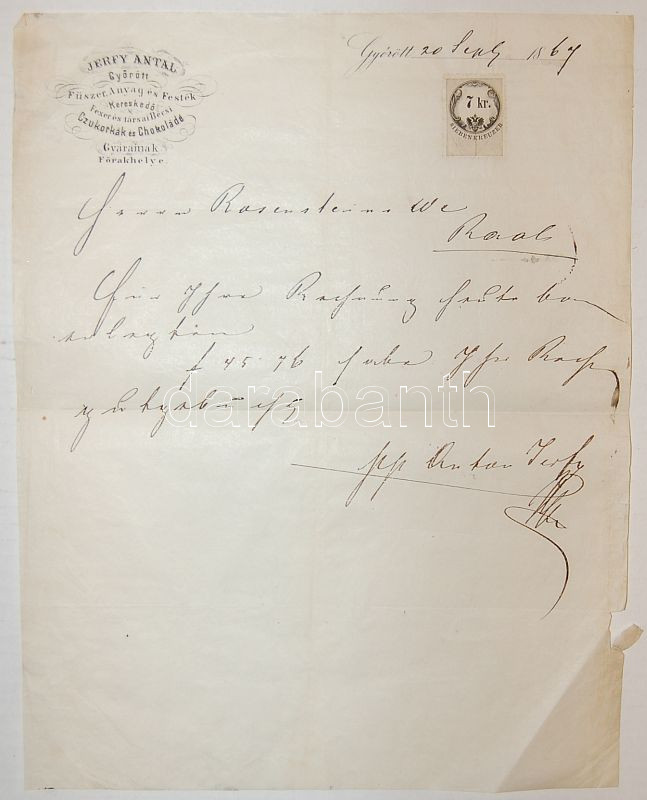 JERFY ANTAL
Győrött
Fűszer, Anyag és Festék
Kereskedő
Fexer és társai Bécsi
Czukorkák és Chokoládé
Gyárainak
Főrakhelye.
Győrött 20 Sept 1867
7 kr.
SIEBENKREUZER
Herrn Rosensteins We
Raab
Für Ihre Rechnung heute
f 45.76 habe Ihr Rech
gutgebucht
Anton Jerfy
darabanth